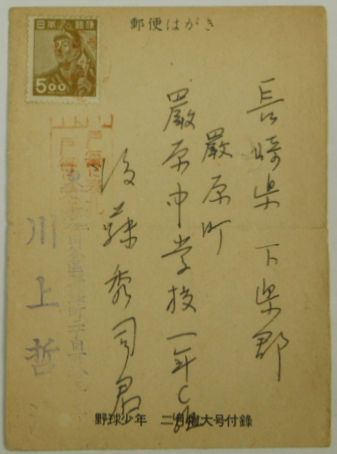 郵便はがき
日本郵便
5.00
長崎県 下県郡
厳原町
厳原中学校 一年C組
後藤秀司君
川上哲
野球少年 二月増大号付録